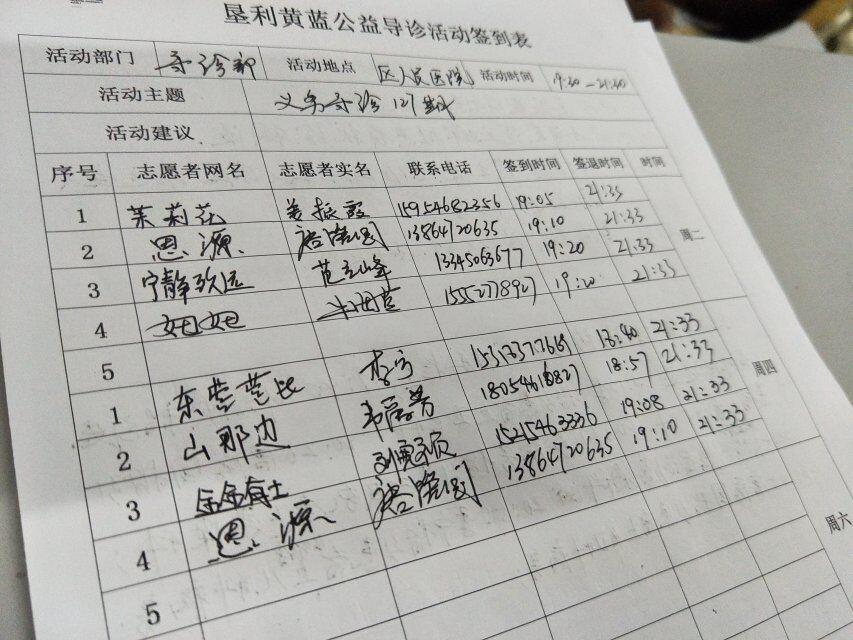 垦利黄蓝公益导诊活动签到表
活动部门 导诊部 活动地点 区人民医院 活动时间 19:30—21:30
活动主题 义务导诊127期
活动建议
序号 志愿者网名 志愿者实名 联系电话 签到时间 签退时间 时间
1 茉莉花 姜振霞 15954682356 19:05 21:33
2 思源 13864720635 19:10 21:33 周二
3 宁静致远 范玉峰 13345063677 19:20 21:33
4 妞妞 15552778927 19:20 21:33
5
1 东营芸比 李宁 21:33
2 山那边 18:57 21:33 周四
3 金金有土 15215463336 19:08 21:33
4 思源 13864720635 19:10 21:33
5 周六